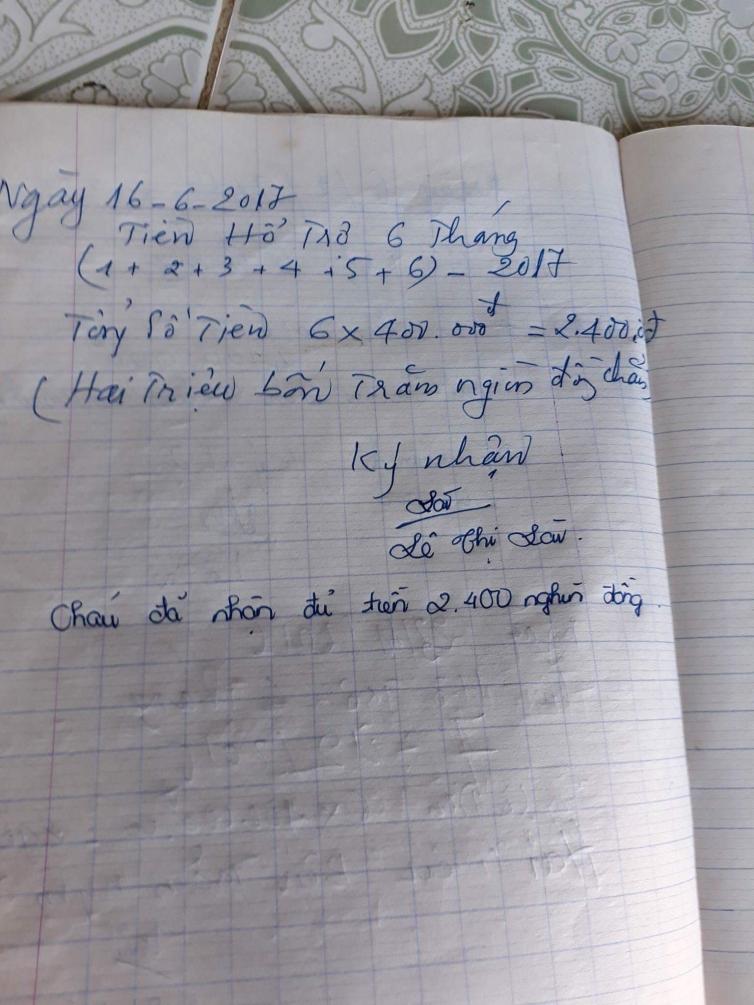 Ngày 16-6-2017
Tiền Hổ Trợ 6 Tháng
(1 + 2 + 3 + 4 + 5 + 6) - 2017
Tổng Số Tiền 6 x 400.000đ = 2.400.
(Hai Triệu bốn Trăm ngìn đồng chẵn
Ký nhận
Sáu
Lê Thị Sáu.
Cháu đã nhận đủ tiền 2.400 nghìn đồng.